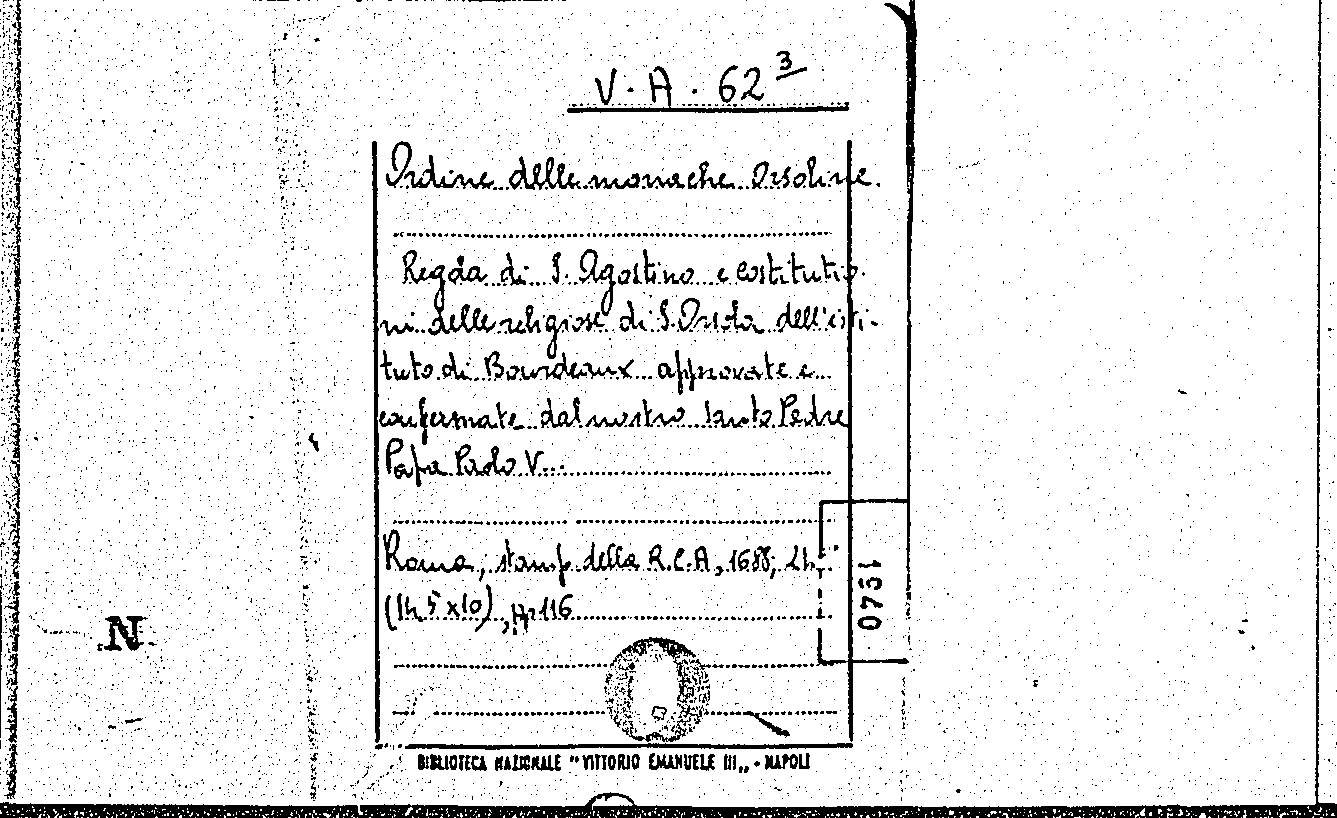 V. A. 62 3
Ordine delle monache Orsoline.
Regola di S. Agostino e costitutio-
ni delle religiose di S. Orsola dell'isti-
tuto di Bourdeaux approvate e
confermate dal nostro Santo Padre
Papa Paolo V...
Roma, stamp. della R.C.A, 1688, 24.
(14,5 x 10), pp 116
0731
N
BIBLIOTECA NAZIONALE "VITTORIO EMANUELE III„ - NAPOLI